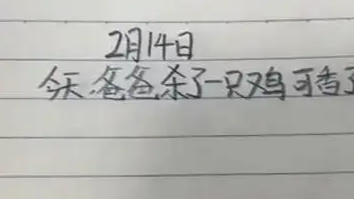 2月14日
今天爸爸杀了一只鸡可香了